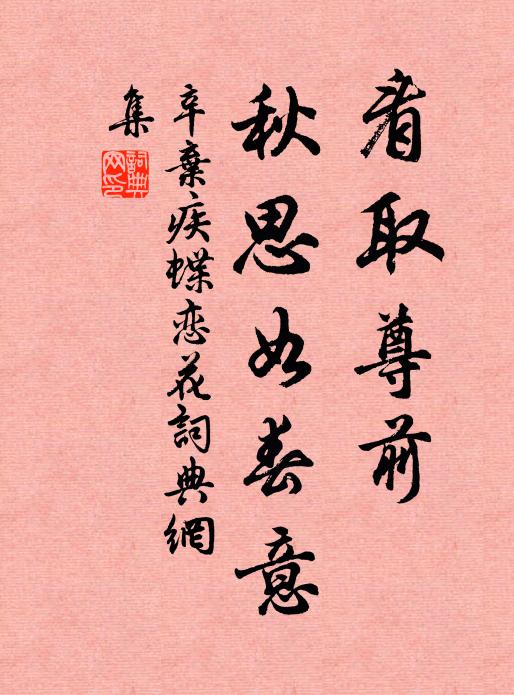 看取尊前
秋思如春意
辛棄疾蝶恋花詞典網
集
詞典网印